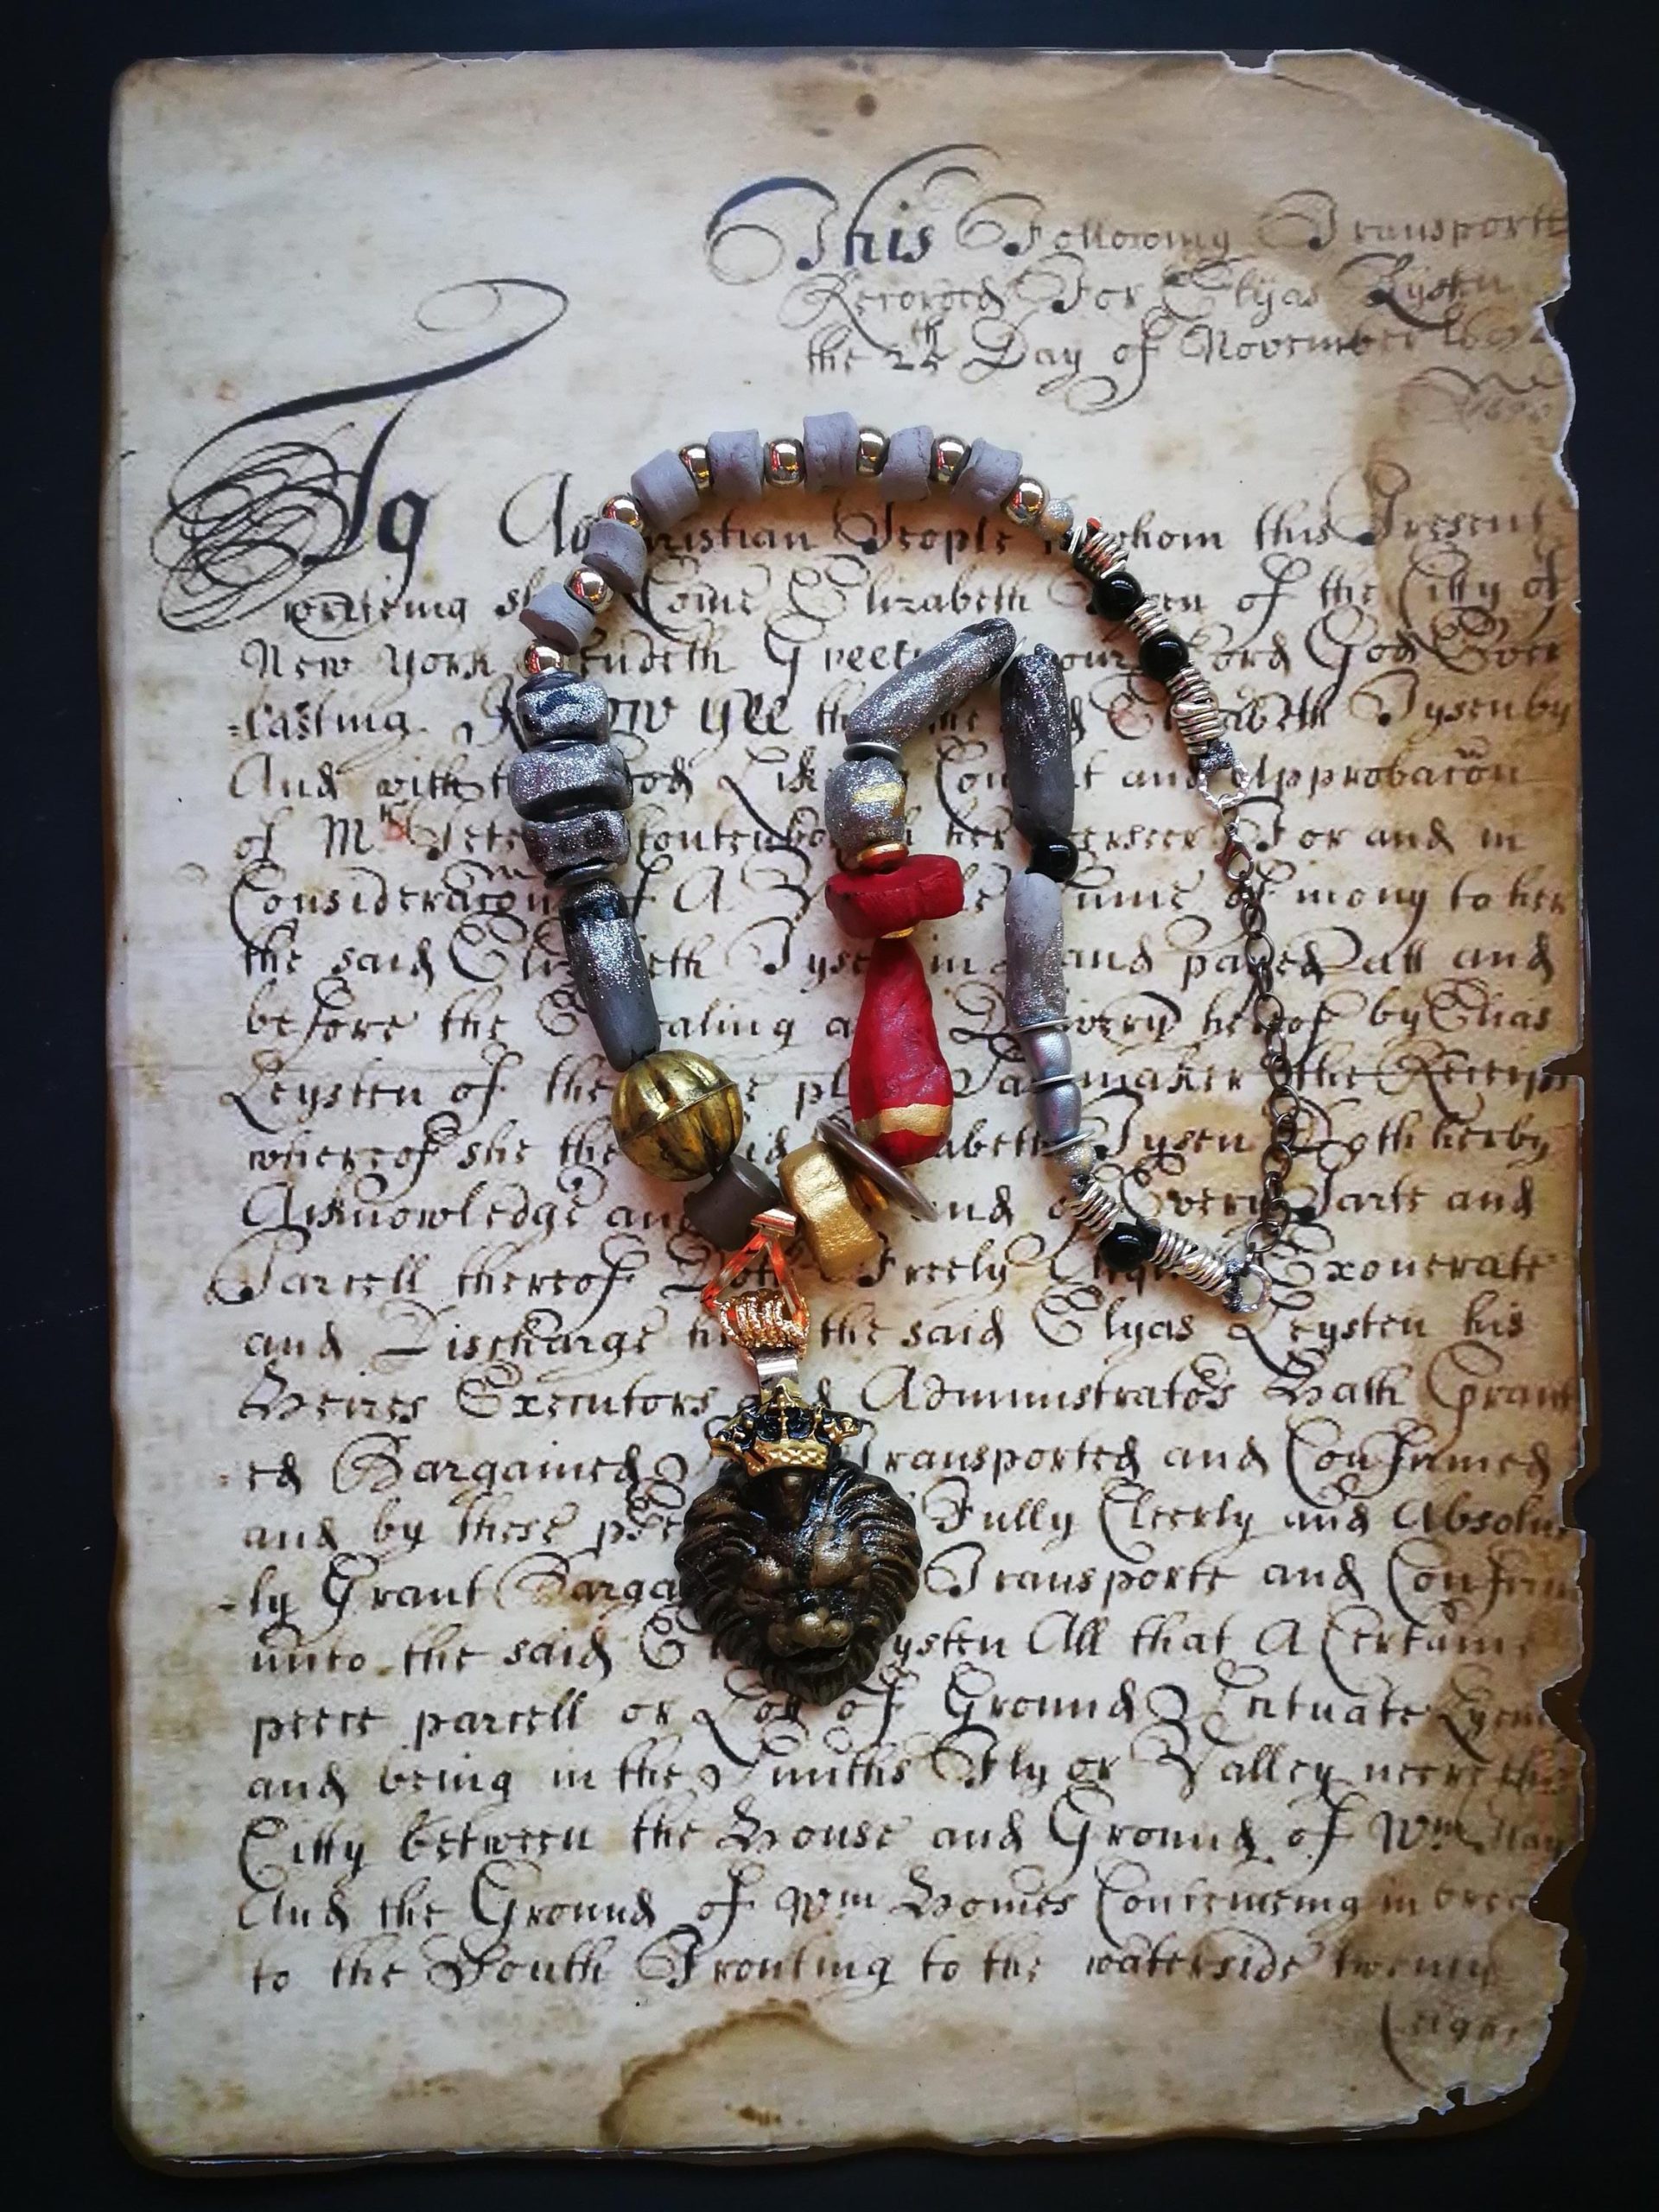 This Following Transporte
Recorded For Elyas
the 24th Day of November
To All Christian People to whom this Present
writeing shall Come Elizabeth of the Citty of
New York Sendeth Greeting our Lord God Ever
=lasting. Know Yee that Elizabeth Tysen by
And with the Good Liking Consent and Approbacon
of Mr her Overseer For and in
Consideracon of A Summe of mony to her
the said Elizabeth Tysen in and payed att and
before the Ensealing and Delivery hereof by Elias
Leysten of the same place the Receipt
whereof she the said Elizabeth Tysen Doth herby
Acknowledge and and of Every Parte and
Parcell thereof Doth Freely Exonerate
and Discharge the said Elyas Leysten his
Heires Executors and Administrators Hath Grant
-ed Bargained Transported and Confirmed
and by these Fully Cleerly and Absolut
-ly Grant Bargaine Transporte and Confirm
unto the said Leysten All that A Certaine
peece parcell or Lot of Ground Scituate Lyeing
and being in the Smiths Fly or Valley neere the
Citty between the House and Ground of Wm
And the Ground of Wm Homes Conteineing in
to the South Fronting to the waterside twenty